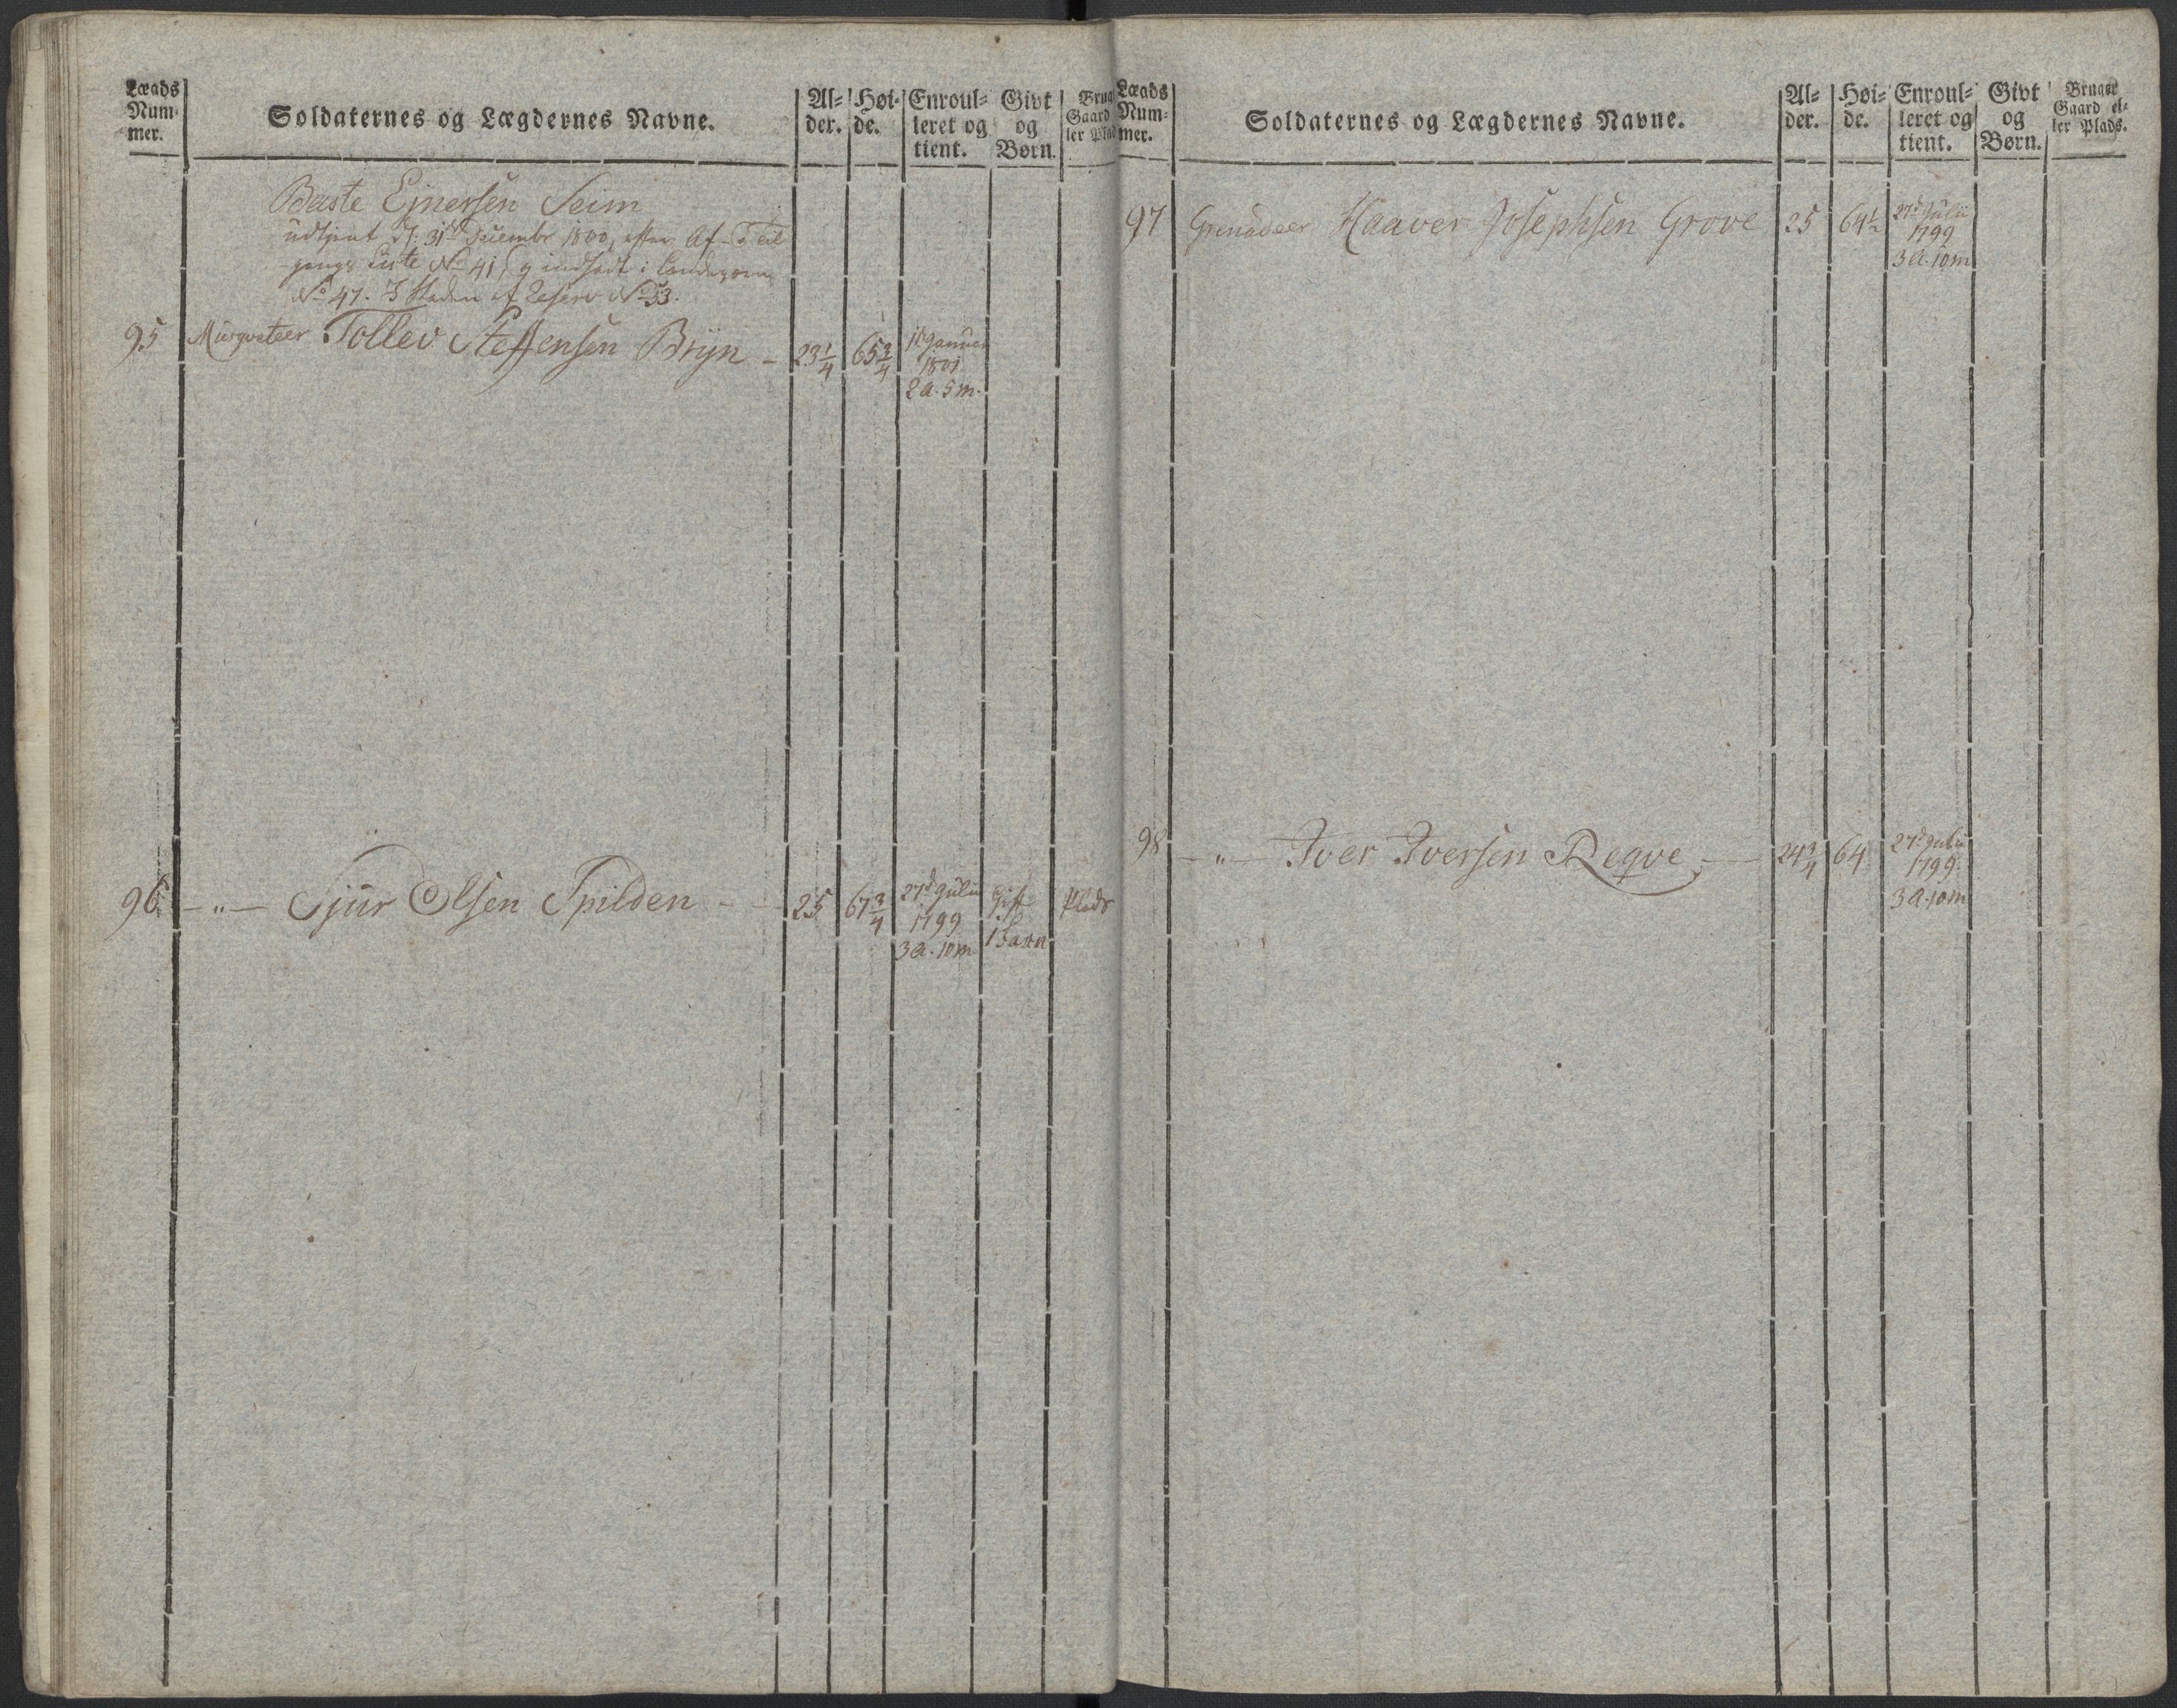 Lægds Nummer. Soldaternes og Lægdernes Navne. Alder. Høide. Enroulleret og tient. Givt og Børn. Brug Gaard ler Plad
Baste Ejnersen Seim
udtjent d: 31te Decembr 1800, efter Af- og Til
gangs Liste No 41, og indsadt i Landeværn
No 47. I Staden af Reserv No 53.
95 Musqveteer Tollev Steffensen Bryn - 23 1/4 65 3/4 1te Januar
1801
2 a. 5 m.
96 - " - Sjur Olsen Spilden - - 25 67 3/4 27d Julii Gift Plads
1799 1 barn
3 a. 10 m
Lægds Nummer. Soldaternes og Lægdernes Navne. Alder. Høide. Enroulleret og tient. Givt og Børn. Bruger Gaard eller Plads.
97 Grenadeer Haaver Josephsen Grove 25 64 1/2 27d Julii
1799
3 a. 10 m
98 - " - Iver Iversen Reqve - 24 3/4 64 27d Julii
1799
3 a. 10 m